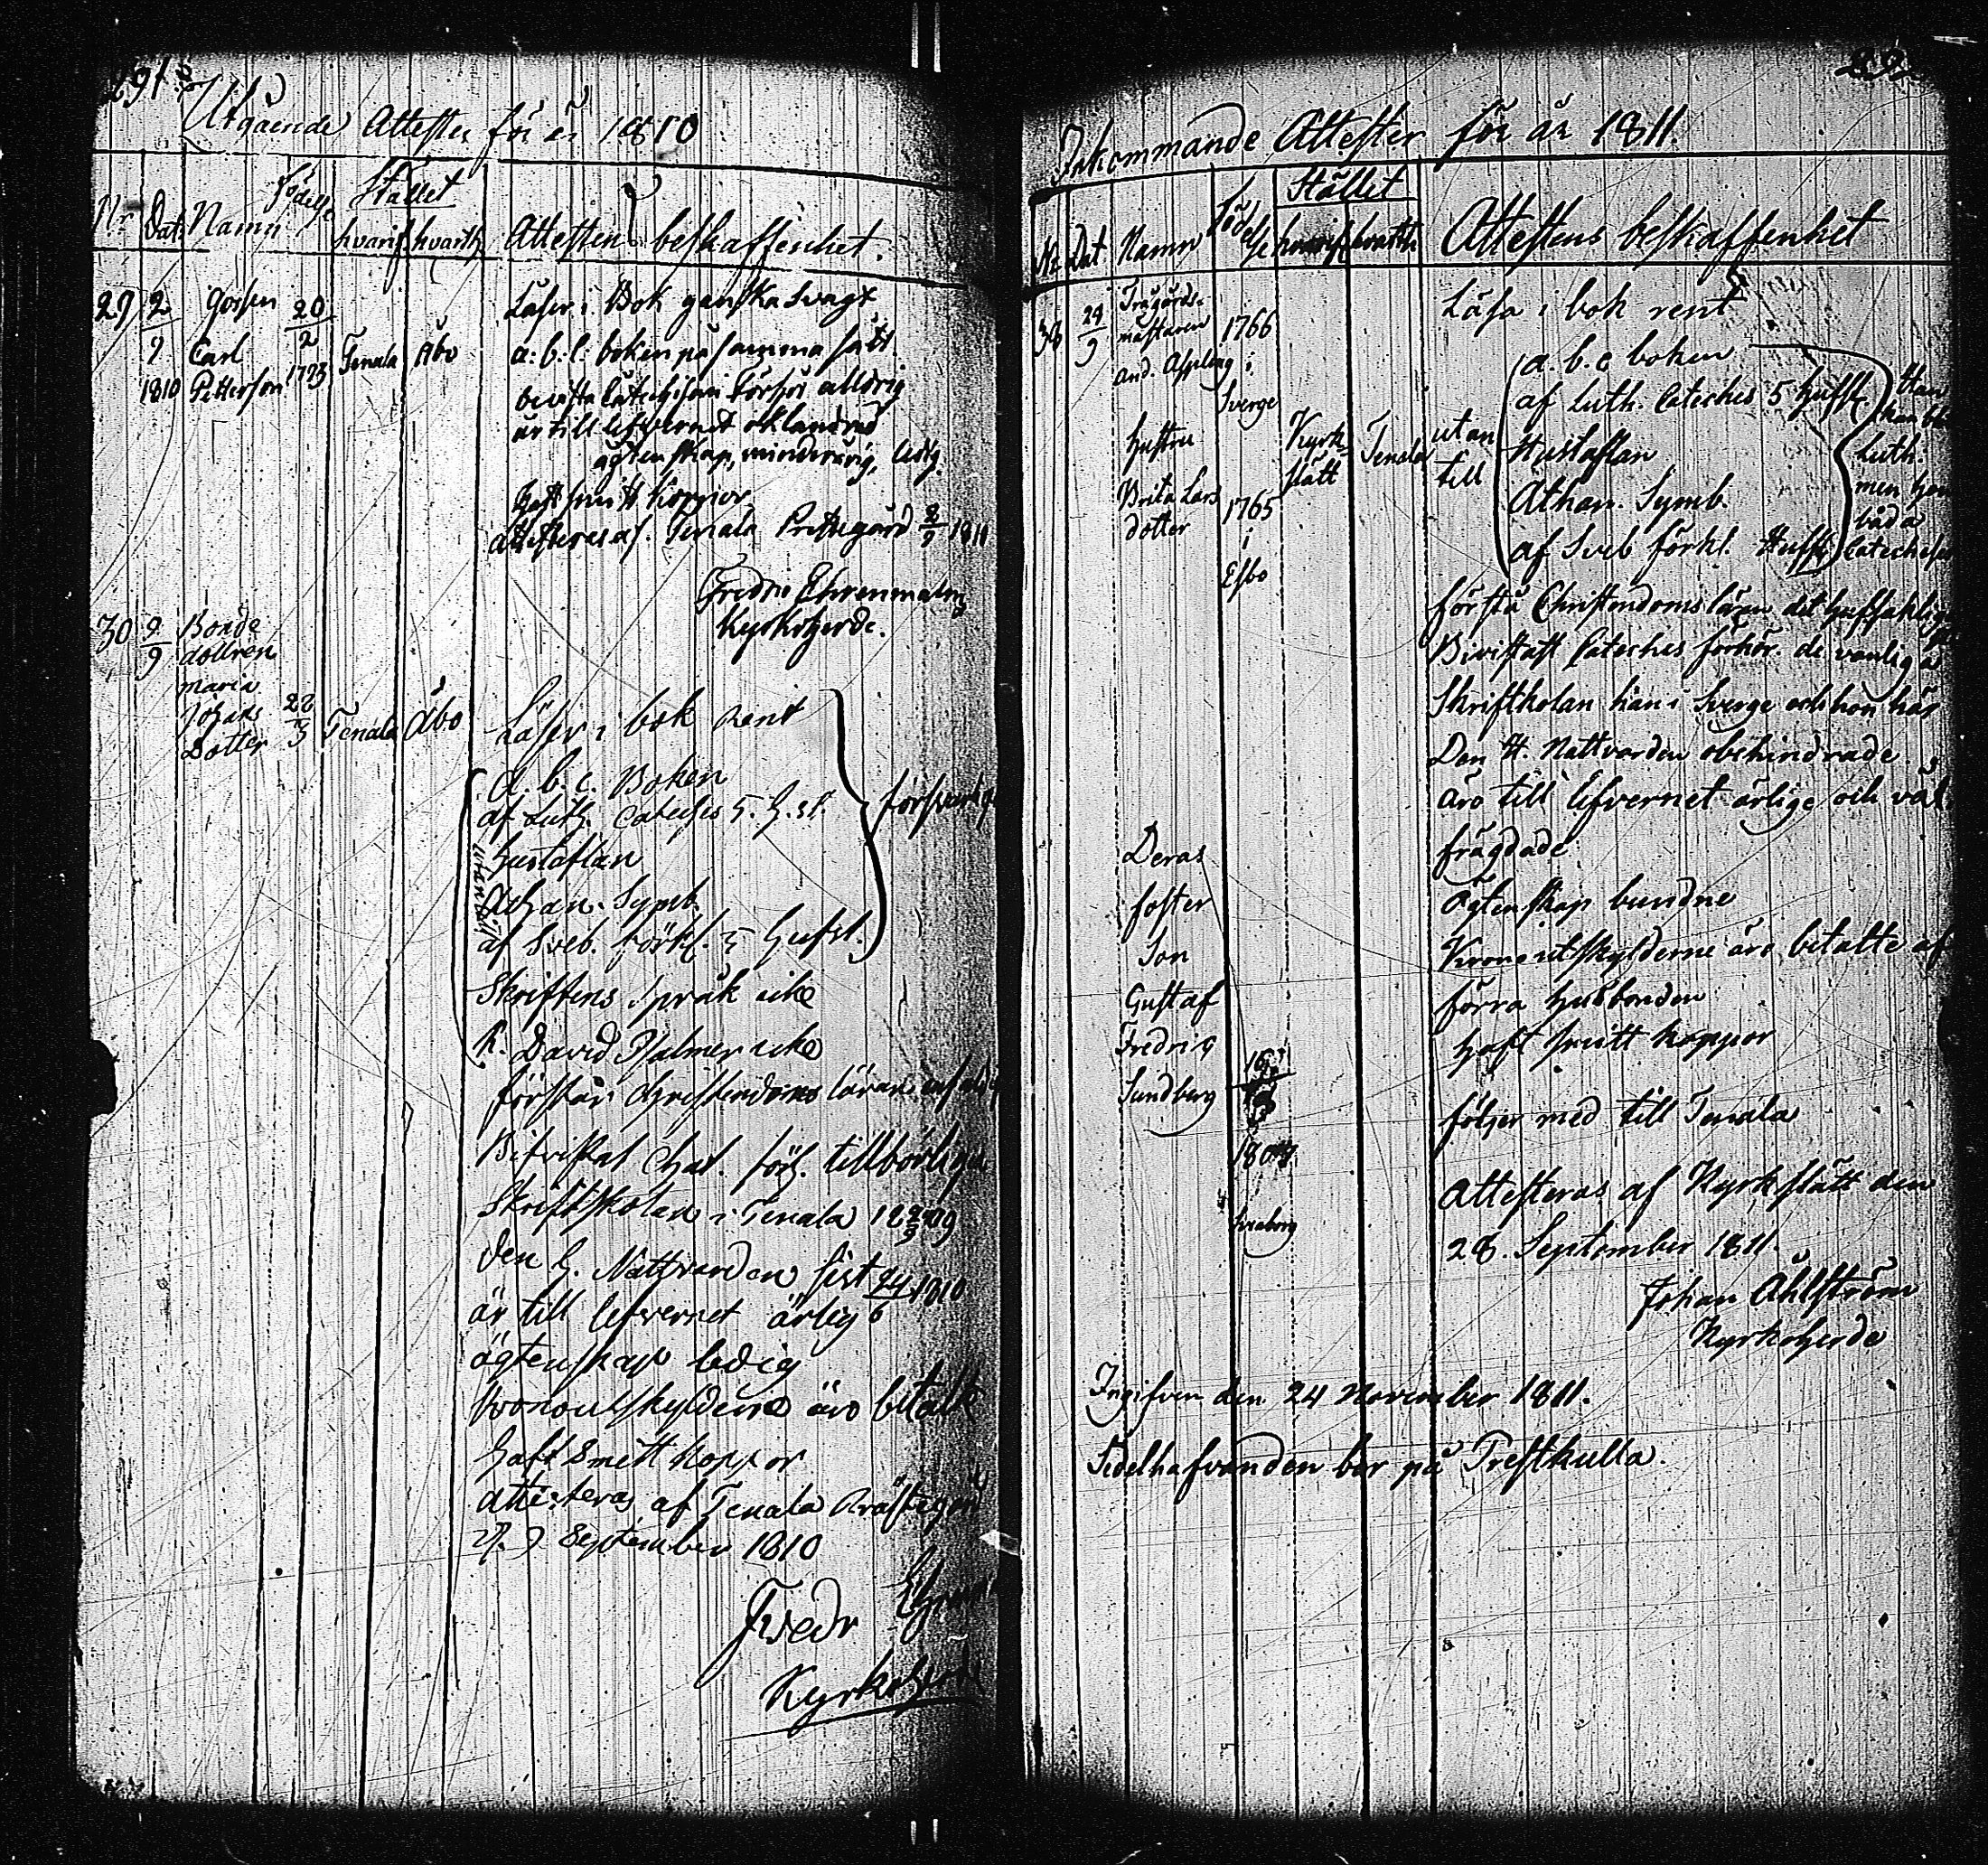 291
Utgående Attester för år 1810
Nr Dat: Namn Födelse Stället hvarif. hvarth. Attestens beskaffenhet.
29 2/9 1810 Gossen Carl Petterson 20/2 1793 Tenala Åbo
Läser i Bok ganska svagt
a: b: c: boken på samma sätt
bevista Catechismi Förhör alldrig
är till lefvernet oklandrad
ägtenskap, minderårig, ledig
haft smitt koppor
attesteras af Tenala Prestegård 2/9 1810
Fredric Ehrenmalm
Kyrkoherde.
30 9/9 Bonde dottren Maria Johans Dotter 22/3 Tenala Åbo
Läser i bok rent
A. b. c. Boken
af Luth. Cateches 5. h. st.
hustaflan
Athan. Symb.
af Sveb. förkl. 5 hufst.
utantill
försvarlig
Skriftens språk icke
K. David Psalmer icke
förstår Christendoms läran
Bevistat Chat. förh. tillbörligen
Skriftskolan i Tenala 1809
den h. Nattvarden sist 24/6 1810
är till lefvernet ärlig
ägtenskap ledig
Kronoutskylderne äro betalte
haft Smitt koppor
attesteras af Tenala Prästegård
d. 9 September 1810
Fredr Ehren
Kyrkoherde
292
Inkommande Attester för år 1811.
Nr Dat Namn Födelse Stället hvarif. hvarth. Attestens beskaffenhet
36 29/9 Trägårds-mästaren And. Appling 1766 i Sverge
hustru Brita Lars dotter 1765 i Esbo
Kyrkslätt Tenala
Läsa i bok rent
utan till
a. b. c boken
af Luth. Cateches 5 hufst.
Hustaflan
Athan. Symb.
af Sveb förkl. Hufst
Luth.
men hon
båda
Catecheser
förstå Christendoms läran det hufsakliga
Bivistatt Cateches förhör. de vanliga
Skriftskolan han i Sverge och hon här
Den H. Nattvarden obehindrade
äro till lefvernet ärlige och väl
frägdade
Ägtenskap bundne
Kronoutskylderne äro betalte af
förra husbonden
haft smitt koppor
Deras foster Son Gustaf Fredric Sundberg
Sveaborg
följer med till Tenala
Attesteras af Kyrkslätt den
28. September 1811.
Johan Åhlström
Kyrkoherde
Ingifven den 24 November 1811.
Sedelhafvanden bor på Prestkulla.